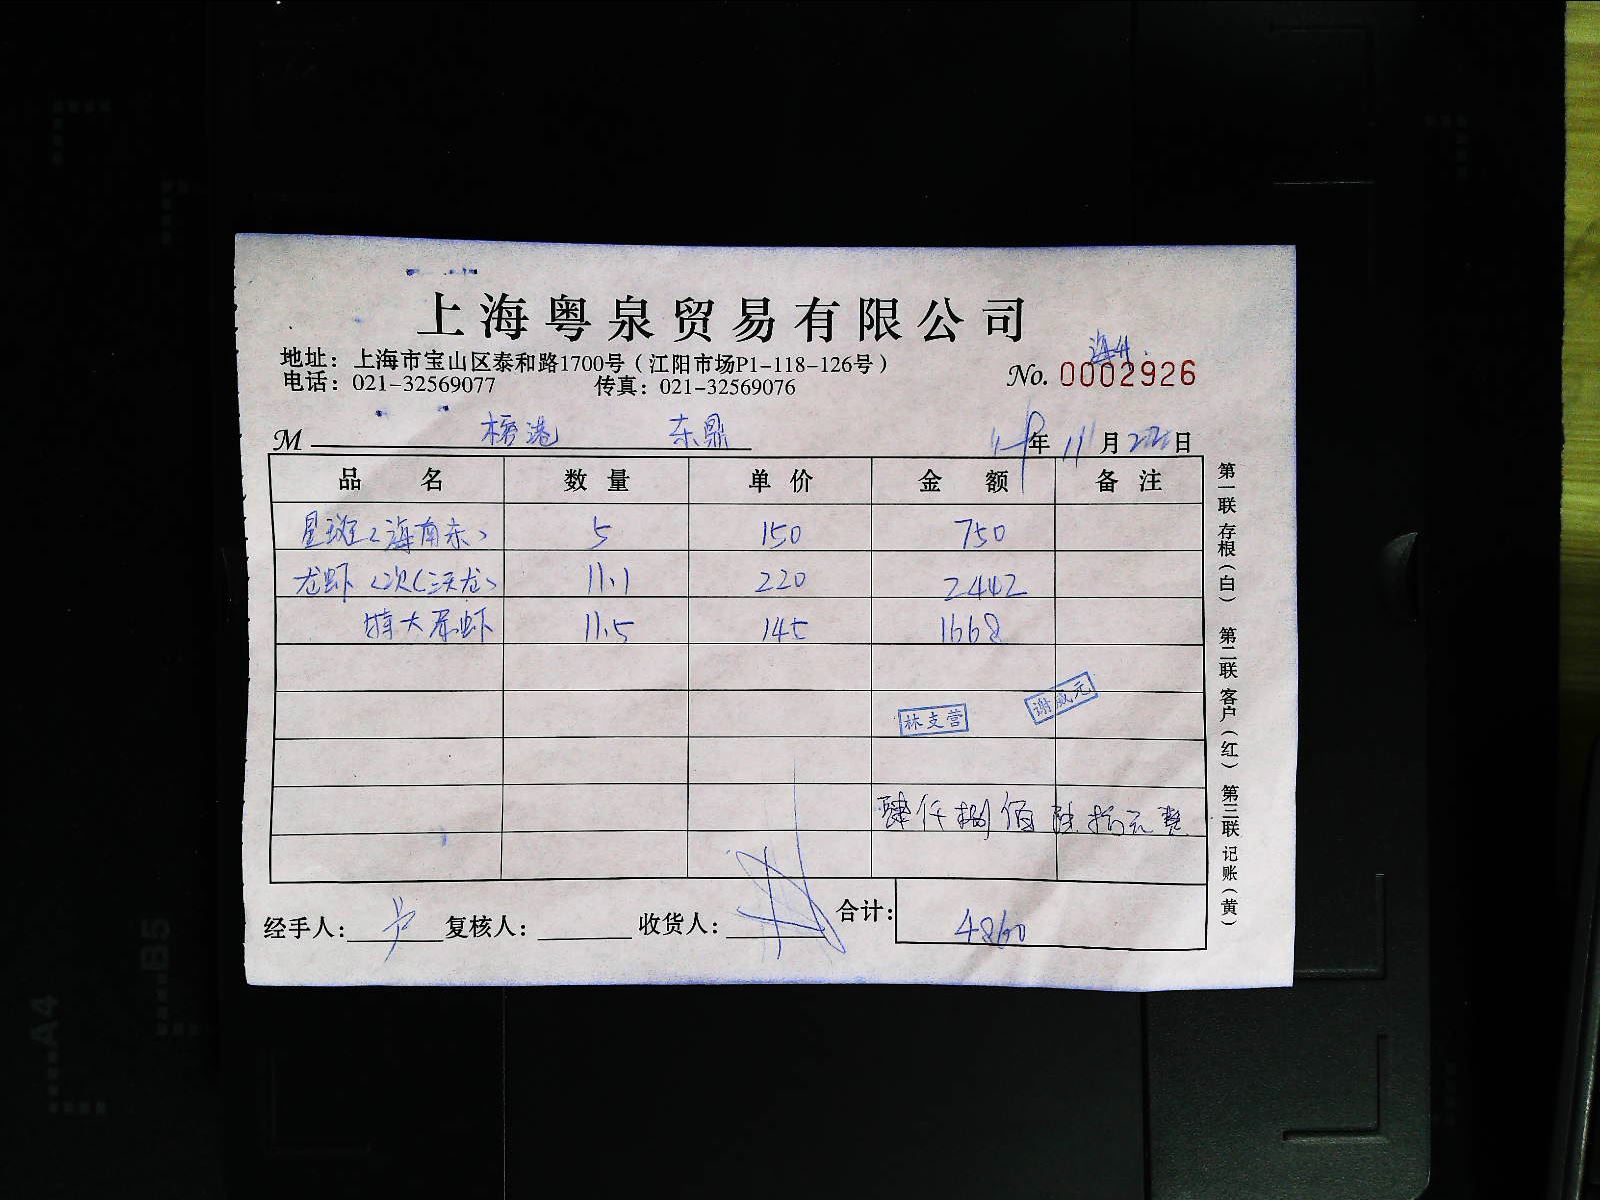 上海粤泉贸易有限公司
地址：上海市宝山区泰和路1700号（江阳市场P1-118-126号）
电话：021-32569077 传真：021-32569076
No. 0002926
M 东鼎
年 11月 日
品名 数量 单价 金额 备注
星斑（海南东） 5 150 750
龙虾 11.1 220 2442
特大尿虾 11.5 145 1668
林支营
谢威元
肆仟捌佰陆拾元整
经手人： 复核人： 收货人： 合计： 4860
第一联 存根（白） 第二联 客户（红） 第三联 记账（黄）
A4
B5